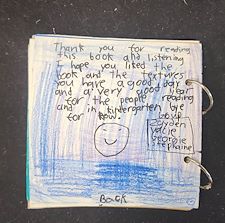 Thank you for reading
this book and listening
I hope you liked the
book and the textures
you have a good day
and a very good year
for the people reading
and in kindergarten
for
love
Jayden
Georgie
Stephanie
Back